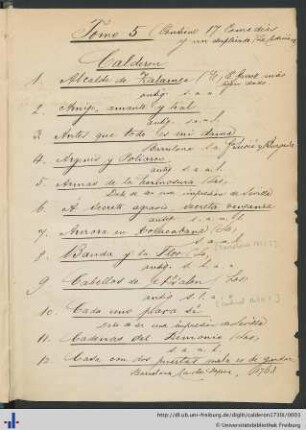 Tomo 5 (Contiene 17 Comedias
y un duplicado
Calderon
1. Alcalde de Zalamea (El)
antig. s. a. l.
2. Amigo, amante y leal
antig. s. a. l.
3. Antes que todo es mi dama
Barcelona s. a.
4. Argenis y Poliarco
antig. s. a. l.
5. Armas de la hermosura (Las)
s. a. de una impresion de Sevilla
6. A secreto agravio, secreta venganza
antig. s. a. l.
7. Aurora en Copacabana (La)
s. a. l.
8. Banda y la Flor (La)
antig. s. l. a.
9. Cabellos de Absalon (Los)
antig. s. l. a.
10. Cada uno para sí
de una impresion de Sevilla
11. Cadenas del Demonio (Las)
s. a. l.
12. Casa con dos puertas mala es de guardar
Barcelona, 1763
http://dl.ub.uni-freiburg.de/diglit/calderon1730/0003
© Universitätsbibliothek Freiburg